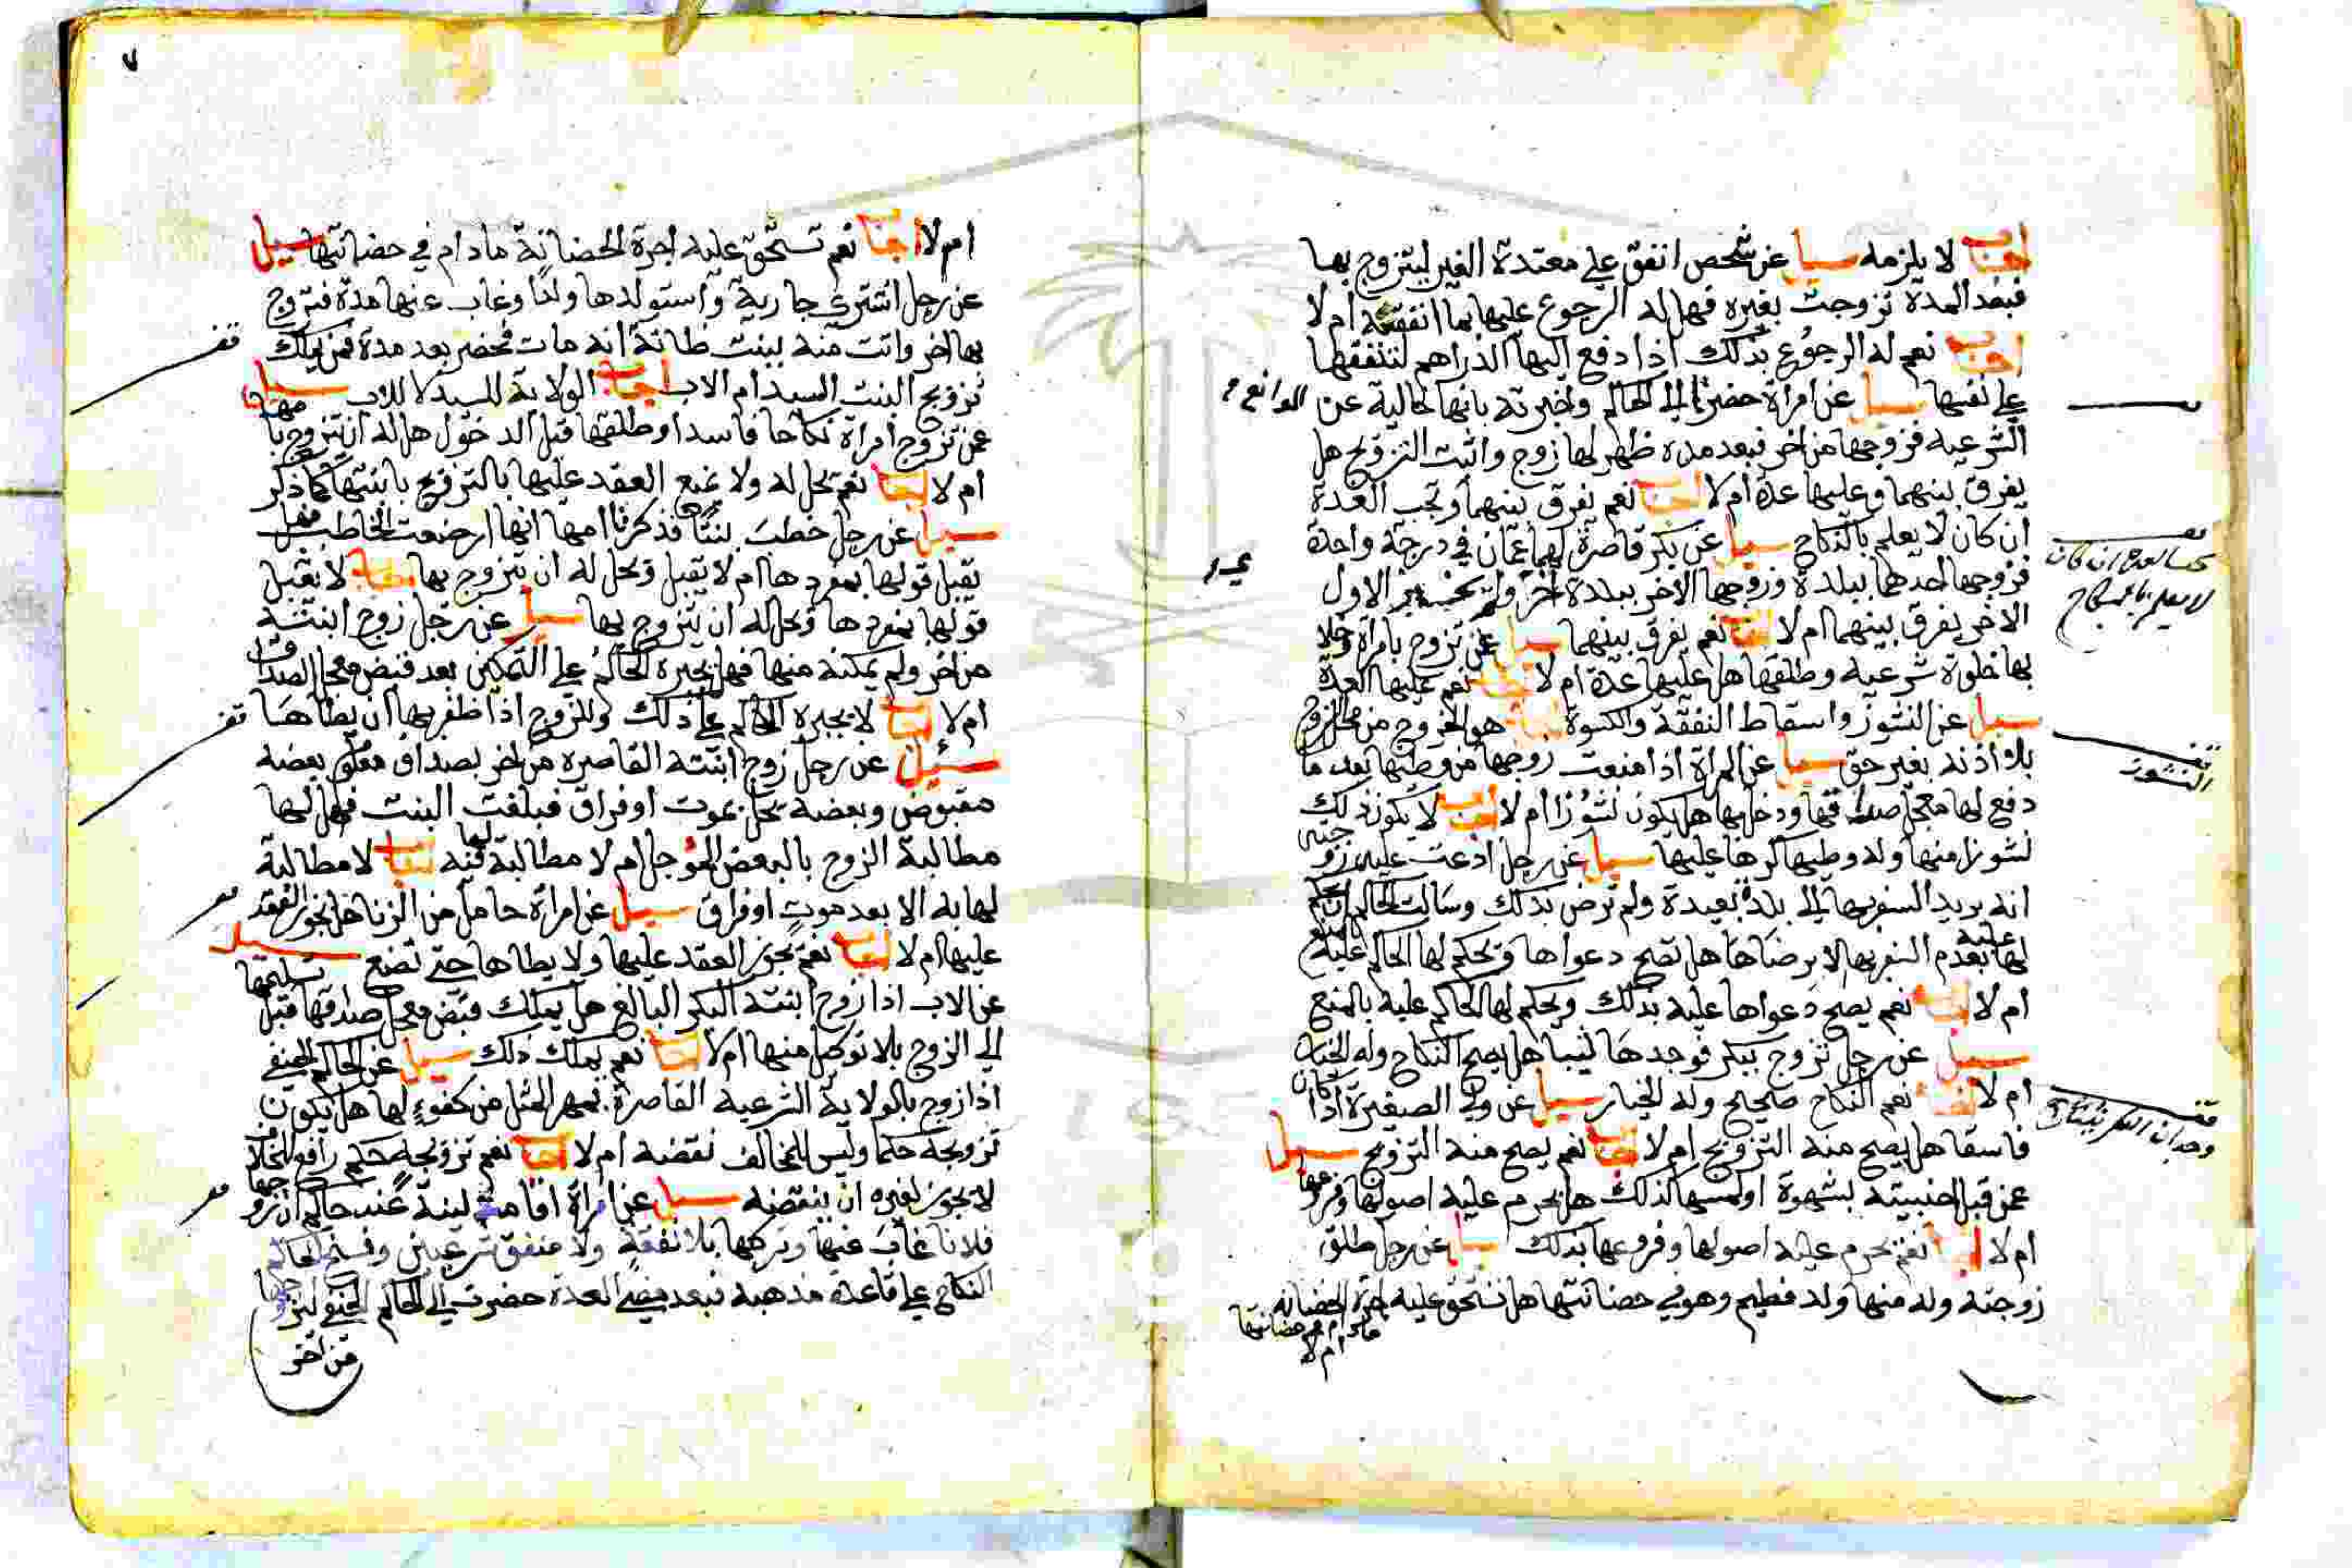 اجاب لا يلزمه سيل عن شخص انفق علي معتدة الغير ليتزوج بها
فبعد المدة تزوجت بغيره فهل له الرجوع عليها بما انفقته ام لا
اجاب نعم له الرجوع بذلك اذا دفع اليها الدراهم لتنفقها
علي نفسها سيل عن امراة حضرت الي الحاكم واخبرته بانها خالية عن الموانع
الشرعيه فزوجها من اخر فبعد مدة ظهر لها زوج واثبت التزويج هل
يفرق بينهما وعليها عدة ام لا اجاب نعم يفرق بينهما وتجب العدة
ان كان لا يعلم بالنكاح سيل عن بكر قاصرة لها عمان في درجة واحدة
فزوجها احدهما ببلدة وزوجها الاخر ببلدة اخر الاول
الاخر يفرق بينهما ام لا اجاب نعم يفرق بينهما سيل عن تزوج بامراة وخلا
بها خلوة شرعيه وطلقها هل عليها عدة ام لا اجاب نعم عليها العدة
سيل عن النشوز واسقاط النفقة والكسوة اجاب هو الخروج من محل الزوج
بلا اذنه بغير حق سيل عن المراة اذا منعت زوجها من وطئها بعد ما
دفع لها معجل صداقها ودخل بها هل يكون نشوزا ام لا اجاب لا يكون ذلك
نشوزا منها وله وطيها كرها عليها سيل عن رجل ادعت عليه زوجته
انه يريد السفر بها الي بلدة بعيدة ولم ترض بذلك وسالت الحاكم ان يحكم
لها عليه بعدم السفر بها الا برضاها هل تصح دعواها ويحكم لها الحاكم عليه
ام لا اجاب نعم يصح دعواها عليه بذلك ويحكم لها الحاكم عليه بالمنع
سيل عن رجل تزوج ببكر فوجدها ثيبا هل يصح النكاح وله الخيار
ام لا اجاب نعم النكاح صحيح وله الخيار سيل عن ولي الصغيرة اذا كان
فاسقا هل يصح منه التزويج ام لا اجاب نعم يصح منه التزويج سيل
عمن قبل اجنبيته بشهوة او لمسها كذلك هل يحرم عليه اصولها وفروعها
ام لا اجاب نعم يحرم عليه اصولها وفروعها بذلك سيل عن رجل طلق
زوجته وله منها ولد فطيم وهو في حضانتها هل تستحق عليه اجرة الحضانة
مادام في حضانتها
ام لا
تجب العدة ان كان
لا يعلم بالنكاح
قف
النشوز
قف
وجدان البكر ثيبا
٧
ام لا اجاب نعم تستحق عليه اجرة الحضانة مادام في حضانتها سيل
عن رجل اشتري جارية واستولدها ولدا وغاب عنها مدة فتزوج
بها اخر واتت منه ببنت ظانة انه مات فحضر بعد مدة فمن يملك
تزويج البنت السيد ام الاب اجاب الولاية للسيد لا للاب سيل
عن تزوج امراة نكاحا فاسدا وطلقها قبل الدخول هل له ان يتزوج بامها
ام لا اجاب نعم تحل له ولا يمنع العقد عليها بالتزويج بابنتها كما ذكر
سيل عن رجل خطب بنتا فذكرت امها انها ارضعت الخاطب فهل
تقبل قولها بمفردها ام لا يقبل وتحل له ان يتزوج بها اجاب لا يقبل
قولها بمفردها وتحل له ان يتزوج بها سيل عن رجل زوج ابنته
من اخر ولم يمكنه منها فهل يجبره الحاكم علي التمكين بعد قبض معجل الصداق
ام لا اجاب لا يجبره الحاكم علي ذلك وللزوج اذا ظفر بها ان يطاها
سيل عن رجل زوج ابنته القاصره من اخر بصداق معلوم بعضه
مقبوض وبعضه يحل بموت او فراق فبلغت البنت فهل لها
مطالبة الزوج بالبعض المؤجل ام لا مطالبة لها فيه اجاب لا مطالبة
لها به الا بعد موت او فراق سيل عن امراة حامل من الزنا هل يجوز العقد
عليها ام لا اجاب نعم يجوز العقد عليها ولا يطاها حتي تضع سيل
عن الاب اذا زوج ابنته البكر البالغ هل يملك قبض معجل صداقها قبل تسليمها
الي الزوج بلا توكيل منها ام لا اجاب نعم يملك ذلك سيل عن الحاكم الحنفي
اذا زوج بالولاية الشرعيه القاصرة بمهر المثل من كفوء لها هل يكون
تزويجه حكما وليس للمخالف نقضه ام لا اجاب نعم تزويجه حكم رافع للخلاف
لا يجوز لغيره ان ينقضه سيل عن امراة اقامت بينة عند حاكم ان زوجها
فلانا غاب عنها وتركها بلا نفقة ولا منفق شرعيين وفسخ الحاكم
النكاح علي قاعدة مذهبه فبعد مضي العدة حضرت الي الحاكم الحنفي ليزوجها
من اخر
قف
قف